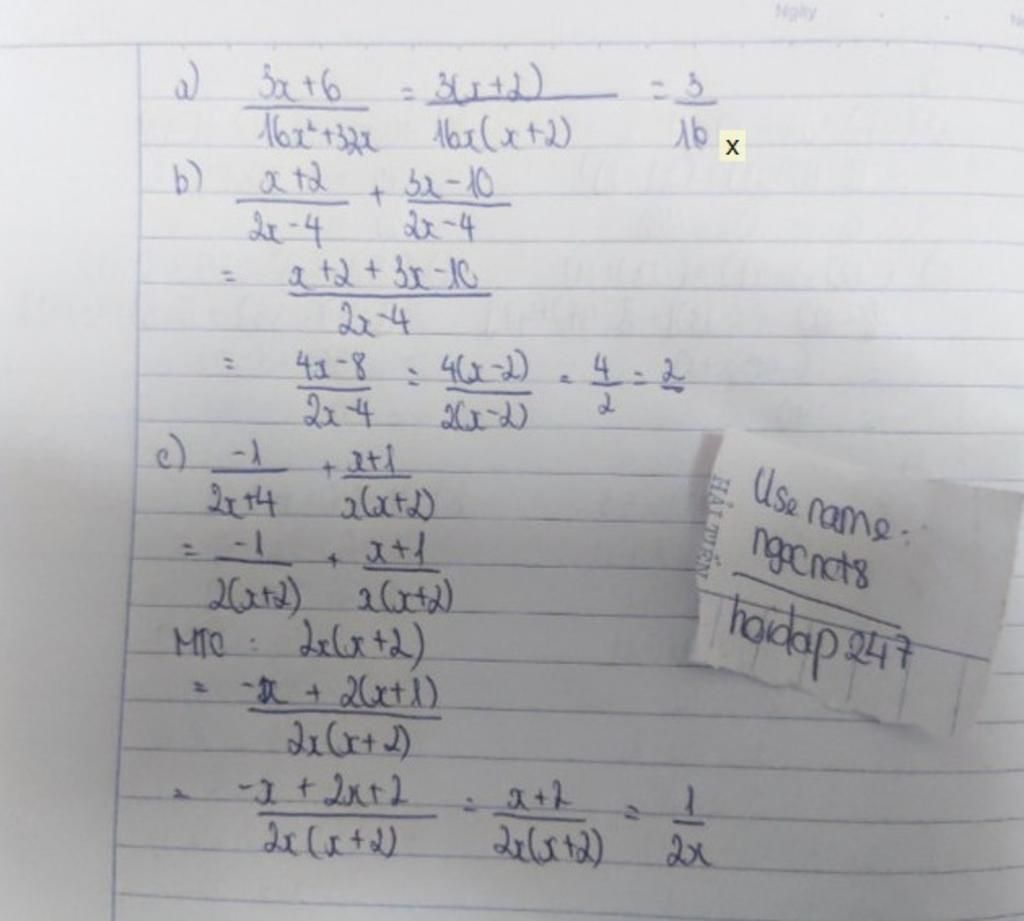 Ngày
a) (3x+6)/(16x²+32x) = 3(x+2)/(16x(x+2)) = 3/(16x)
b) (x+2)/(2x-4) + (3x-10)/(2x-4)
= (x+2+3x-10)/(2x-4)
= (4x-8)/(2x-4) = 4(x-2)/(2(x-2)) = 4/2 = 2
c) -1/(2x+4) + (x+1)/(x(x+2))
= -1/(2(x+2)) + (x+1)/(x(x+2))
MTC : 2x(x+2)
= (-x+2(x+1))/(2x(x+2))
= (-x+2x+2)/(2x(x+2)) = (x+2)/(2x(x+2)) = 1/(2x)
Use name:
ngocnct8
hoidap247